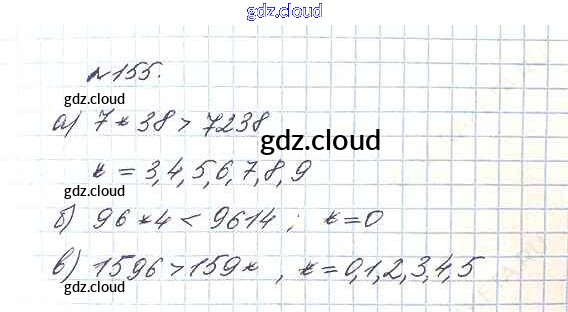 gdz.cloud
№155.
gdz.cloud
а) 7*38 > 7238
gdz.cloud
* = 3,4,5,6,7,8,9
б) 96*4 < 9614; *=0
в) 1596 > 159*, *=0,1,2,3,4,5
gdz.cloud